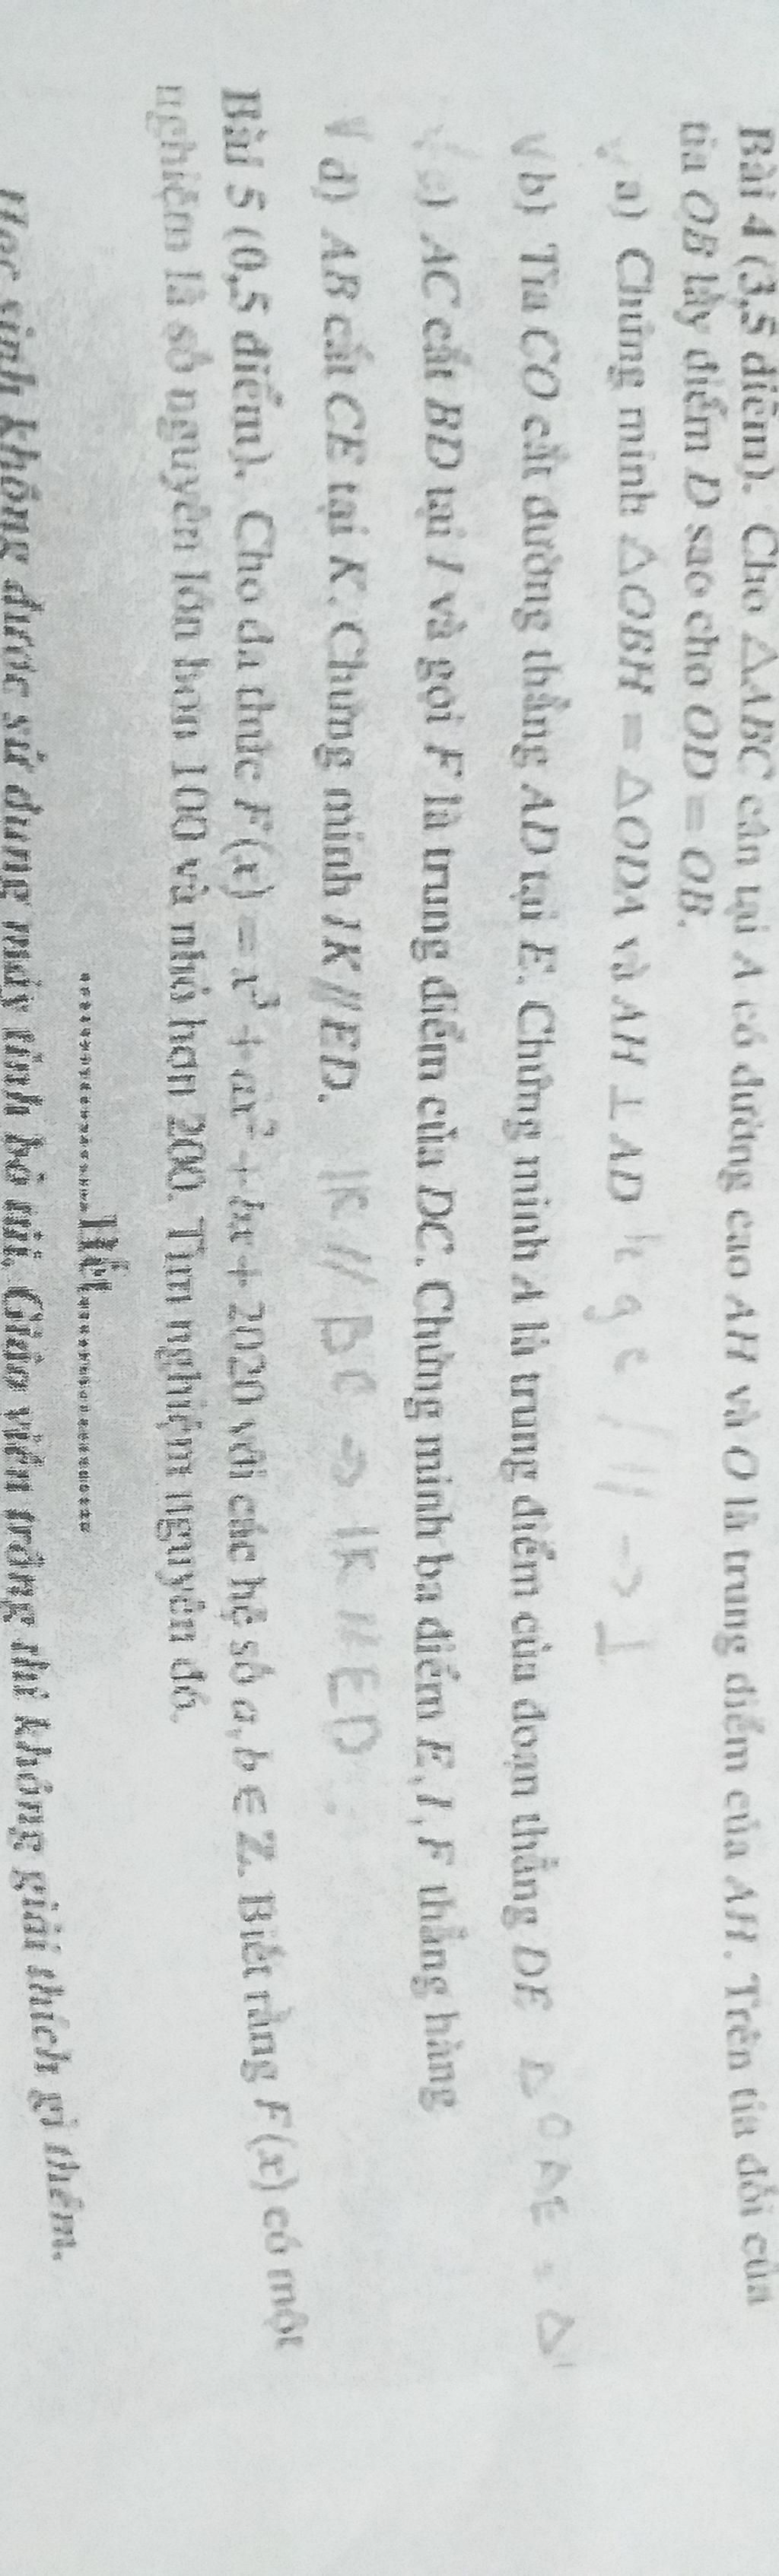 Bài 4 (3,5 điểm). Cho △ABC cân tại A có đường cao AH và O là trung điểm của AH. Trên tia đối của
tia OB lấy điểm D sao cho OD = OB.
a) Chứng minh △OBH = △ODA và AH ⊥ AD h g c // → ⊥
√ b) Tia CO cắt đường thẳng AD tại E. Chứng minh A là trung điểm của đoạn thẳng DE △OAE = △
√ c) AC cắt BD tại I và gọi F là trung điểm của DC. Chứng minh ba điểm E, I, F thẳng hàng
√ d) AB cắt CE tại K. Chứng minh IK // ED. IK // BC → IK // ED
Bài 5 (0,5 điểm). Cho đa thức F(x) = x³ + ax² + bx + 2020 với các hệ số a, b ∈ Z. Biết rằng F(x) có một
nghiệm là số nguyên lớn hơn 100 và nhỏ hơn 200. Tìm nghiệm nguyên đó.
..................Hết..................
Học sinh không được sử dụng máy tính bỏ túi. Giáo viên trông thi không giải thích gì thêm.